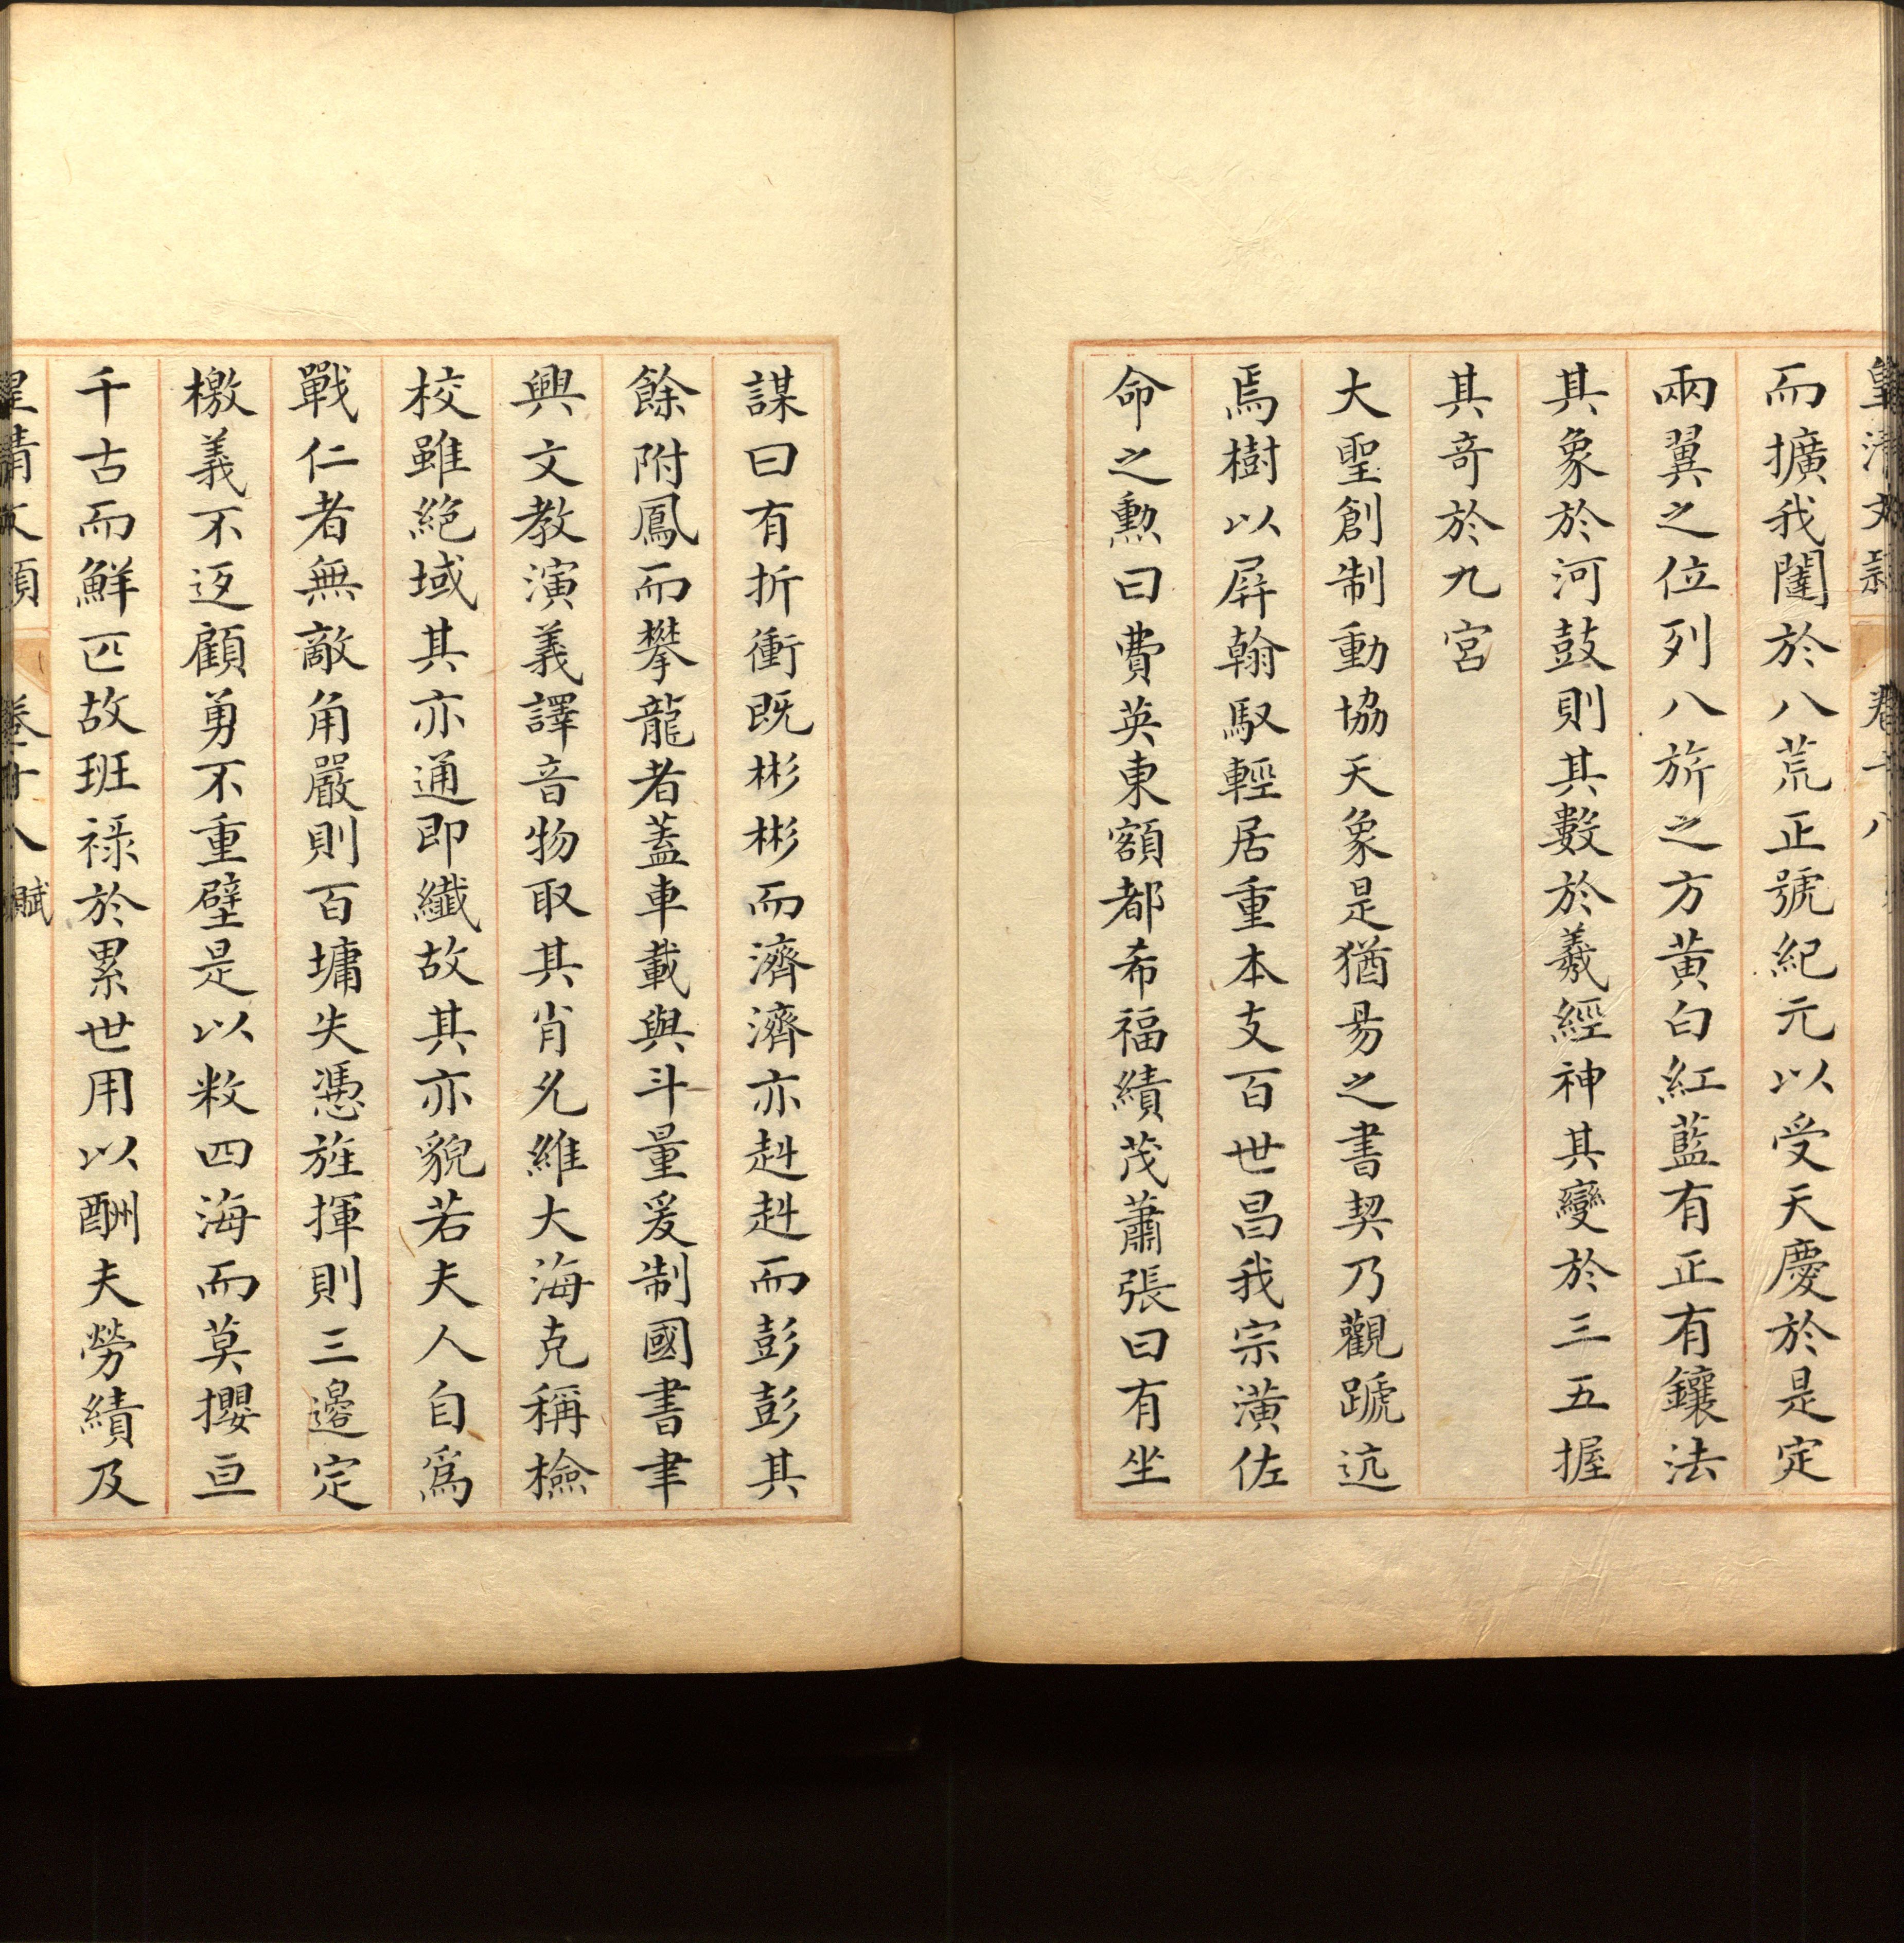 皇清文穎 卷十八
而擴我闥於八荒正號紀元以受天慶於是定
兩翼之位列八旂之方黃白紅藍有正有鑲法
其象於河鼓則其數於羲經神其變於三五握
其奇於九宮
大聖創制動協天象是猶昜之書契乃觀蹏迒
焉樹以屏翰馭輕居重本支百世昌我宗潢佐
命之勲曰費英東額都希福績茂蕭張曰有坐
謀曰有折衝既彬彬而濟濟亦赳赳而彭彭其
餘附鳳而攀龍者蓋車載與斗量爰制國書聿
興文教演義譯音物取其肖允維大海克稱檢
校雖絶域其亦通即纖故其亦貌若夫人自爲
戰仁者無敵角嚴則百墉失憑旌揮則三邊定
檄義不返顧勇不重壁是以敉四海而莫攖亘
千古而鮮匹故班祿於累世用以酬夫勞績及
皇清文穎 卷十八 賦